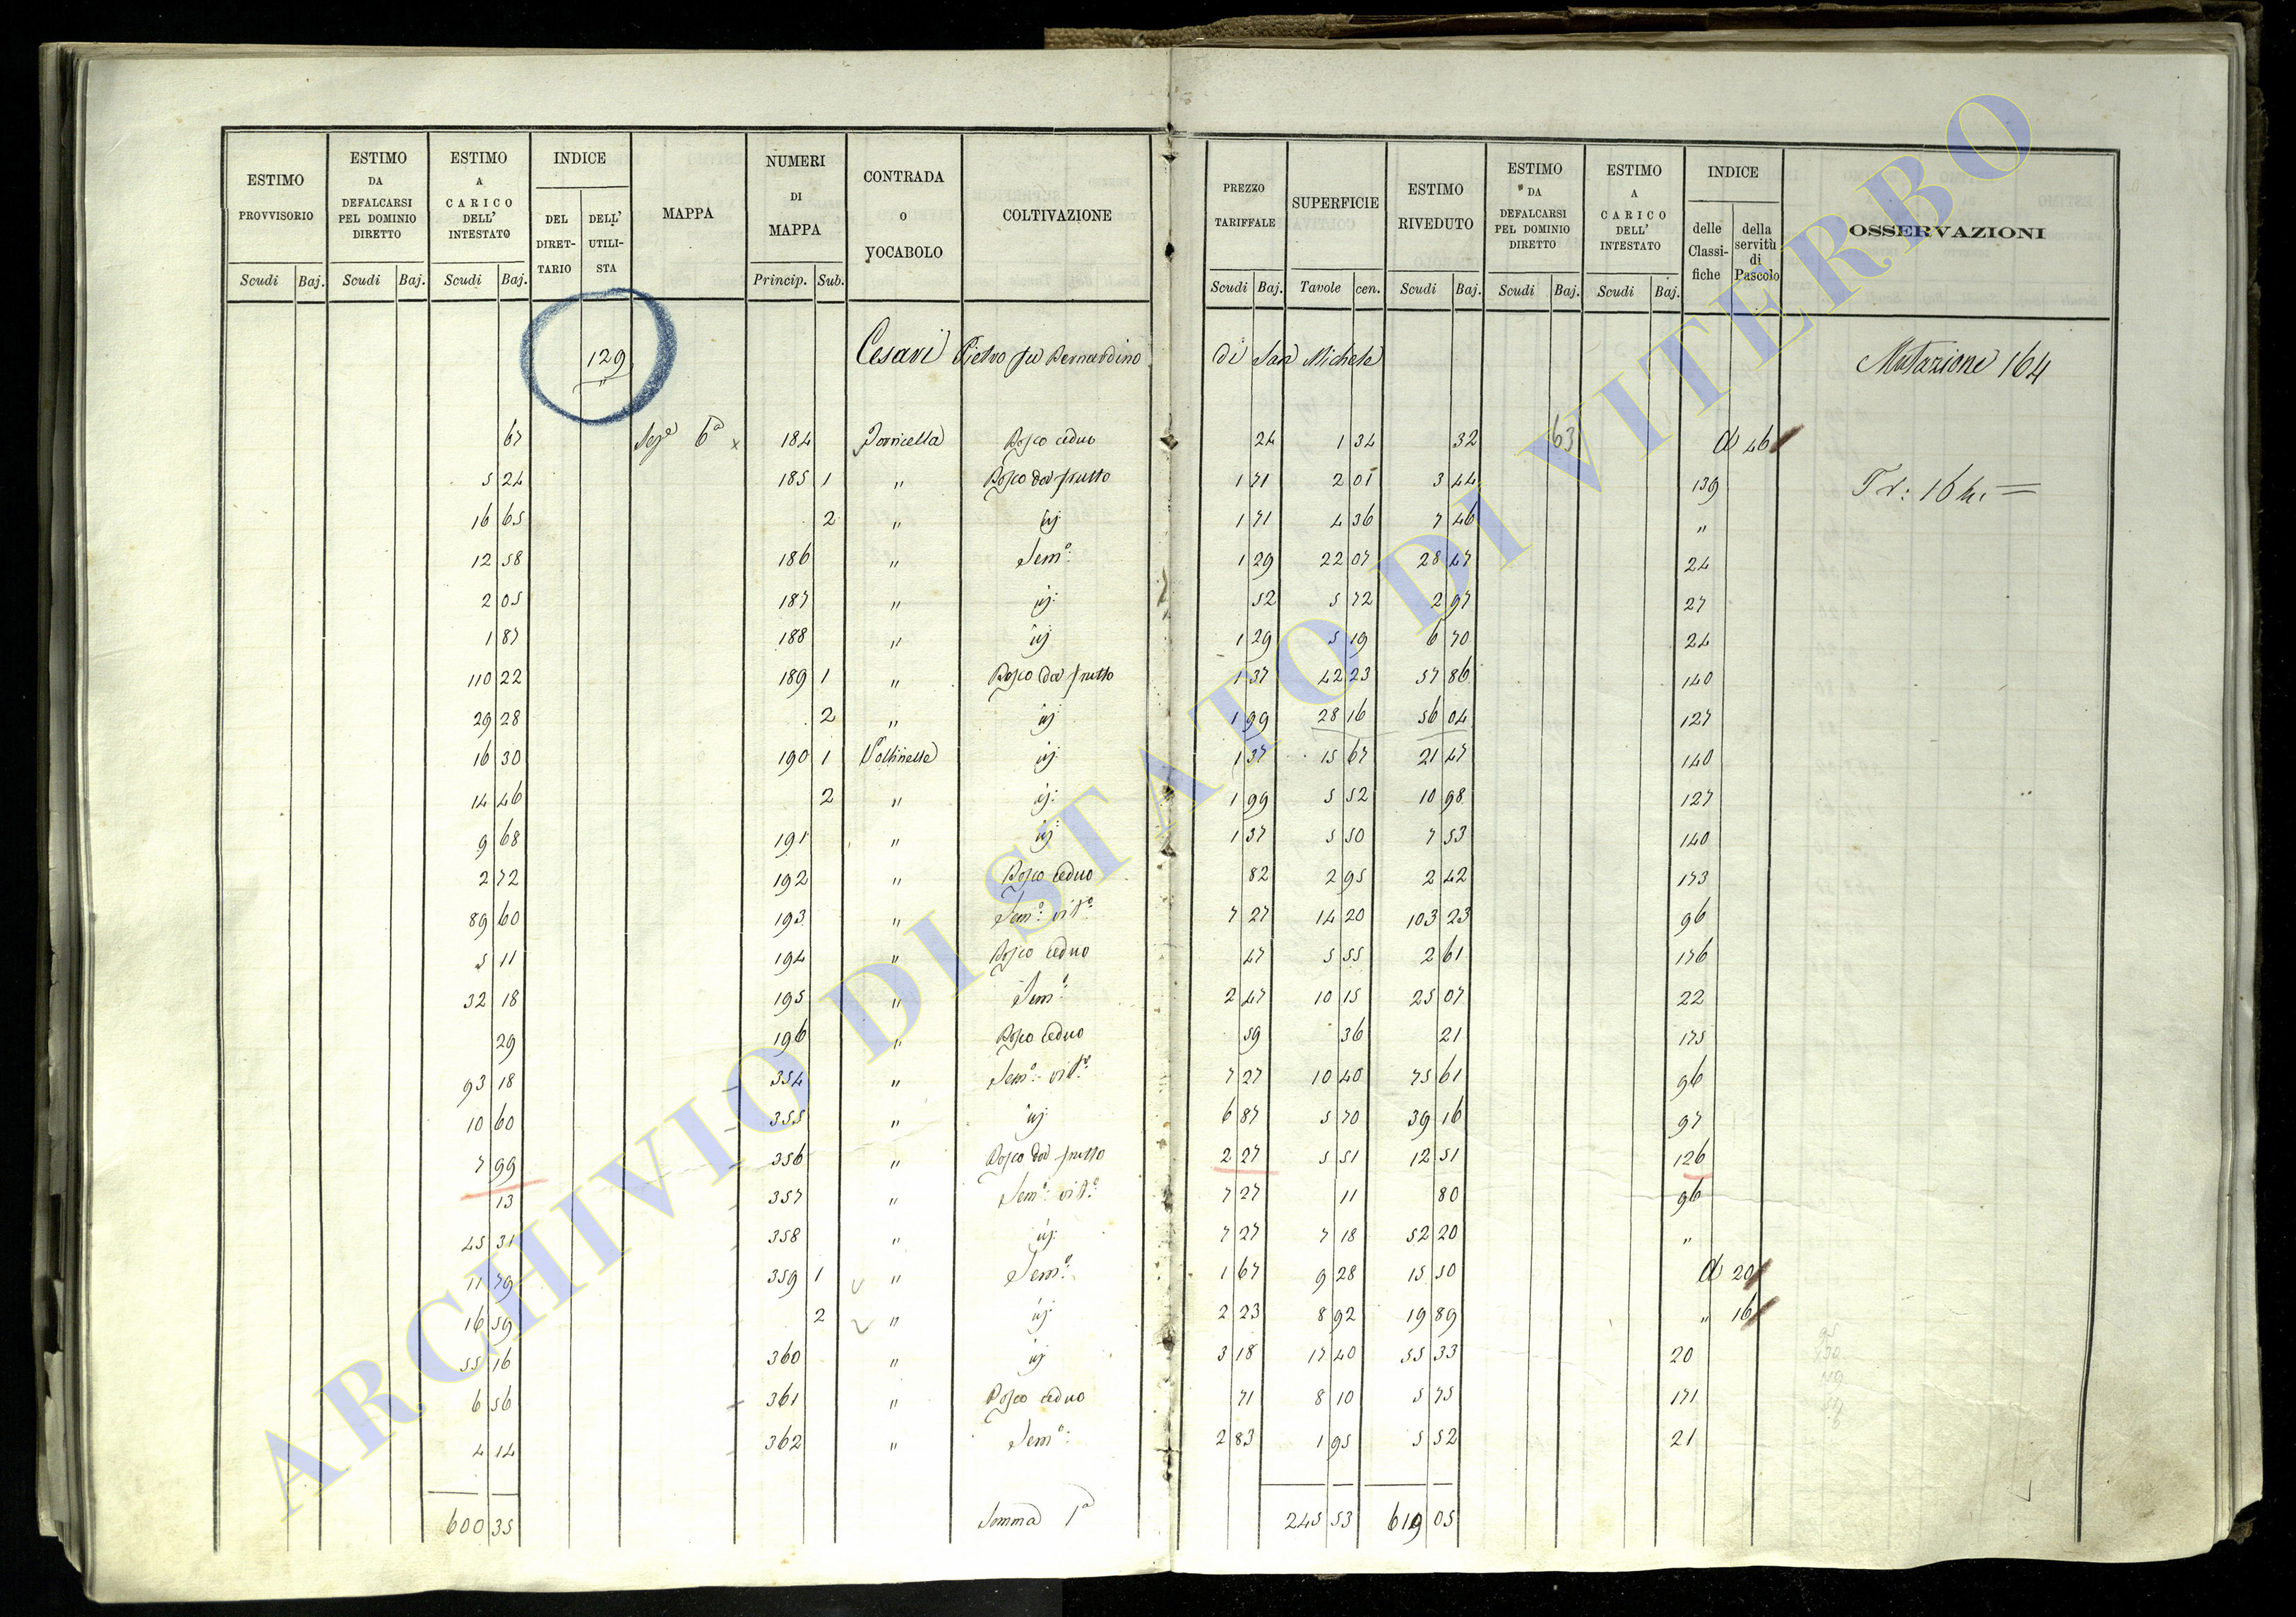 ESTIMO PROVVISORIO Scudi Baj. | ESTIMO DA DEFALCARSI PEL DOMINIO DIRETTO Scudi Baj. | ESTIMO A CARICO DELL' INTESTATO Scudi Baj. | INDICE DEL DIRET-TARIO DELL' UTILI-STA | MAPPA | NUMERI DI MAPPA Princip. Sub. | CONTRADA O VOCABOLO | COLTIVAZIONE | PREZZO TARIFFALE Scudi Baj. | SUPERFICIE Tavole cen. | ESTIMO RIVEDUTO Scudi Baj. | ESTIMO DA DEFALCARSI PEL DOMINIO DIRETTO Scudi Baj. | ESTIMO A CARICO DELL' INTESTATO Scudi Baj. | INDICE delle Classi-fiche della servitù di Pascolo | OSSERVAZIONI
129 Cesari Pietro fu Bernardino di San Michele Mutazione 164
"
67 Sez.e 6a x 184 Torricella Bosco ceduo 24 1 34 32 63 d 46
5 24 185 1 " Bosco da frutto 1 71 2 01 3 44 139 Tr: 164. =
16 65 2 " id: 1 71 4 36 7 46 "
12 58 186 " Sem.o: 1 29 22 07 28 47 24
2 05 187 " id: 52 5 72 2 97 27
1 87 188 " id: 1 29 5 19 6 70 24
110 22 189 1 " Bosco da frutto 1 37 42 23 57 86 140
29 28 2 " id: 1 99 28 16 56 04 127
16 30 190 1 id: 1 37 15 67 21 47 140
14 46 2 " id: 1 99 5 52 10 98 127
9 68 191 " id: 1 37 5 50 7 53 140
2 72 192 " Bosco ceduo 82 2 95 2 42 173
89 60 193 " Sem.o: vit.o: 7 27 14 20 103 23 96
5 11 194 " Bosco ceduo 47 5 55 2 61 176
32 18 195 " Sem.o: 2 47 10 15 25 07 22
29 196 " Bosco ceduo 59 36 21 175
93 18 354 " Sem.o: vit.o: 7 27 10 40 75 61 96
10 60 355 " id: 6 87 5 70 39 16 97
7 99 356 " Bosco da frutto 2 27 5 51 12 51 126
13 357 " Sem.o: vit.o: 7 27 11 80 96
45 31 358 " id: 7 27 7 18 52 20 "
11 79 359 1 " Sem.o: 1 67 9 28 15 50 d 20
16 59 2 " id: 2 23 8 92 19 89 " 16
55 16 360 " id: 3 18 17 40 55 33 20
6 56 361 " Bosco ceduo 71 8 10 5 75 171
4 14 362 " Sem.o: 2 83 1 95 5 52 21
600 35 Somma 1a 245 53 619 05
ARCHIVIO DI STATO DI VITERBO